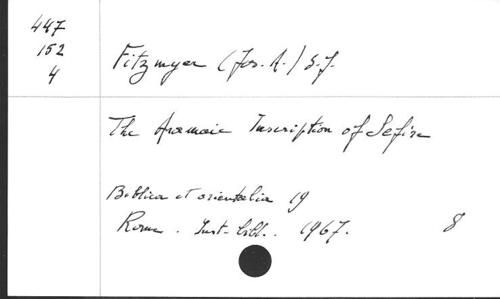 447
152
4
Fitzmyer (Jos. A.) S.J.
The Aramaic Inscription of Sefire
Biblica et orientalia 19
Rome . Inst. bibl. . 1967. 8